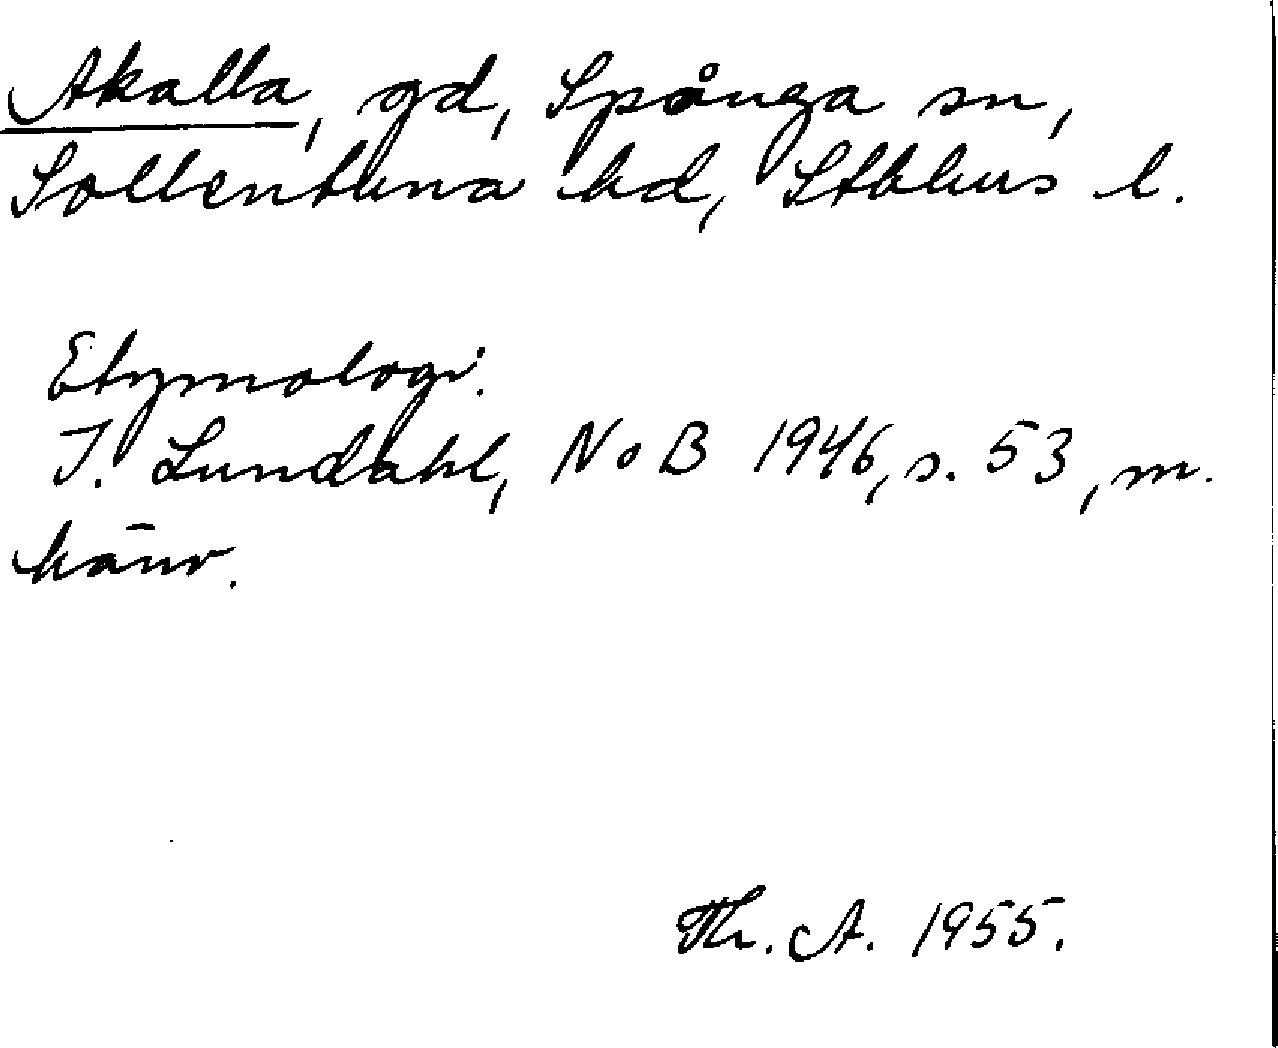 Akalla, gd, Spånga sn,
Sollentuna hd, Sthlms l.
Etymologi.
I. Lundahl, NoB 1946, s. 53, m.
hänv.
Th. A. 1955.